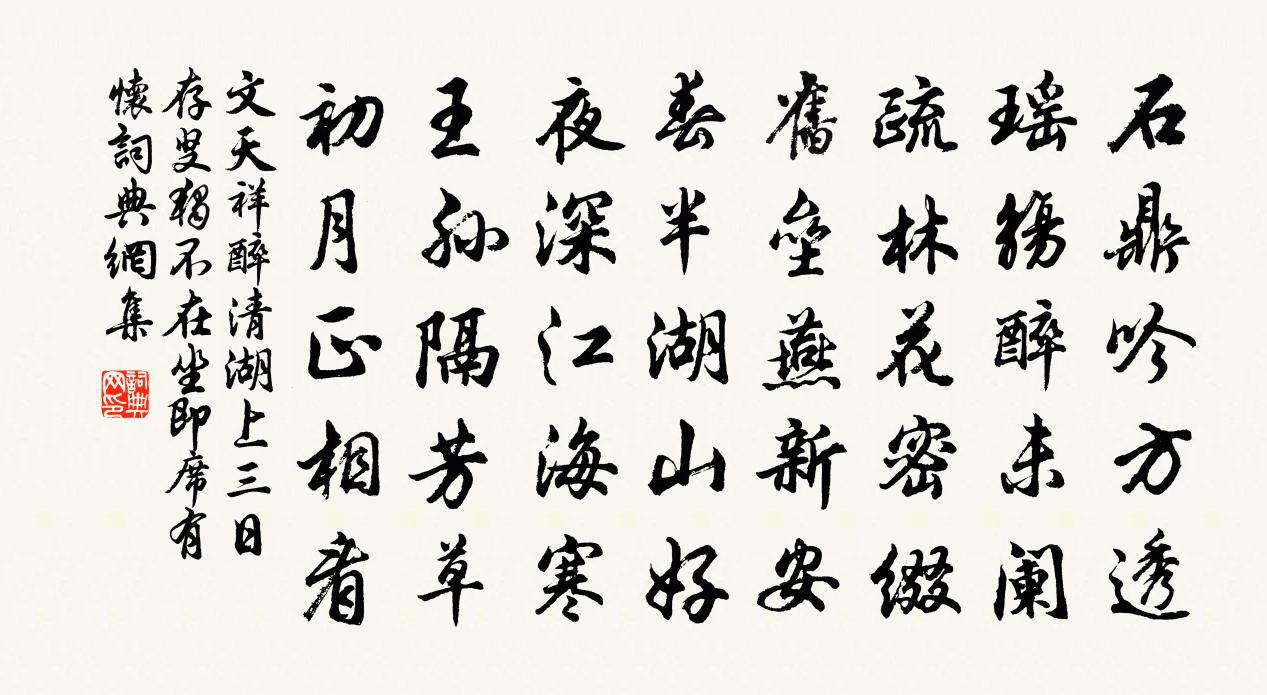 石鼎吟方透
瑶觞醉未阑
疏林花密缀
舊壘燕新安
春半湖山好
夜深江海寒
王孙隔芳草
初月正相看
文天祥醉清湖上三日
存叟獨不在坐即席有
懷詞典網集
詞典网印